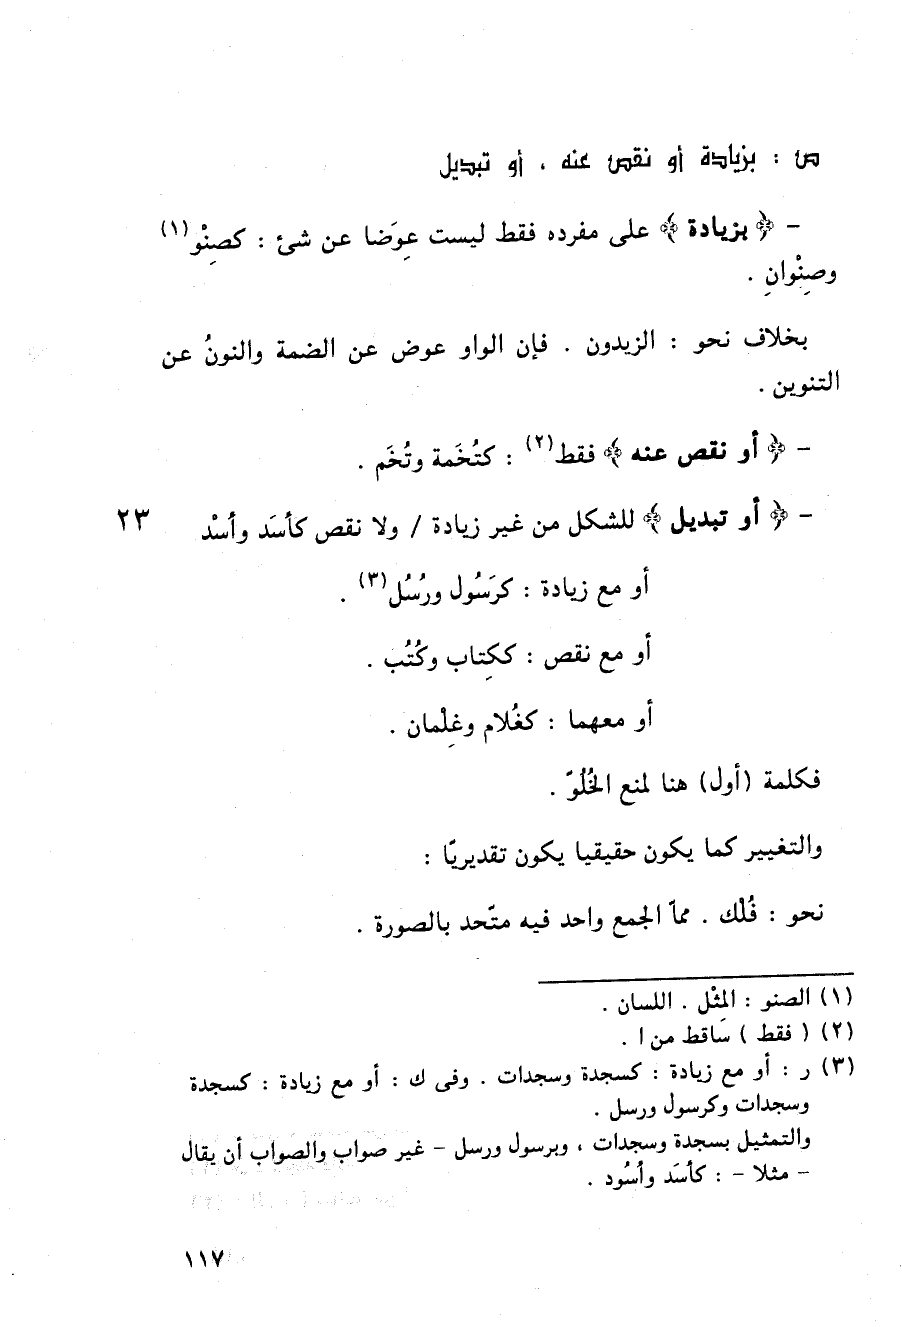 ص : بزيادة أو نقص عنه ، أو تبديل
- ﴿ بزيادة ﴾ على مفرده فقط ليست عِوَضا عن شئ : كصِنْو(١)
وصِنْوانِ .
بخلاف نحو : الزيدون . فإن الواو عوض عن الضمة والنونُ عن
التنوين .
- ﴿ أو نقص عنه ﴾ فقط(٢) : كتُخَمة وتُخَم .
- ﴿ أو تبديل ﴾ للشكل من غير زيادة / ولا نقص كأسَد وأسْد ٢٣
أو مع زيادة : كرَسُول ورُسُل(٣) .
أو مع نقص : ككِتاب وكُتُب .
أو معهما : كغُلام وغِلْمان .
فكلمة (أول) هنا لمنع الخُلُوّ .
والتغيير كما يكون حقيقيا يكون تقديريّا :
نحو : فُلْك . ممّا الجمع واحد فيه متّحد بالصورة .
(١) الصنو : المِثْل . اللسان .
(٢) ( فقط ) ساقط من ا .
(٣) ر : أو مع زيادة : كسجدة وسجدات . وفى ك : أو مع زيادة : كسجدة
وسجدات وكرسول ورسل .
والتمثيل بسجدة وسجدات ، وبرسول ورسل - غير صواب والصواب أن يقال
- مثلا - : كأسَد وأُسُود .
١١٧